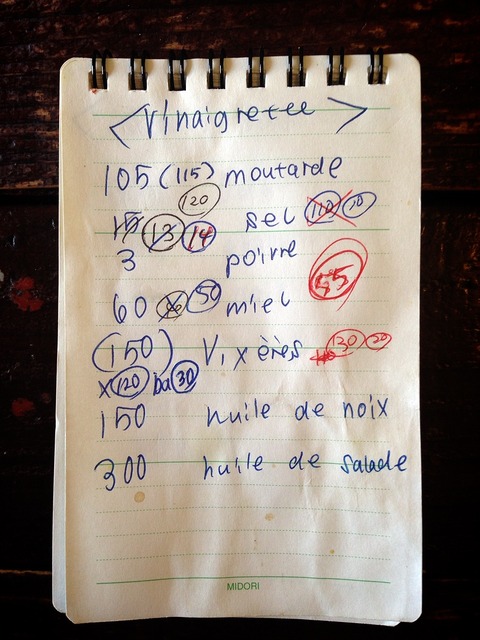 <Vinaigrette>
105 (115) moutarde
120
15 13 14 sel 110 10
3 poivre
60 50 miel 55
(150) Vixères 130 20
x 120 ba 30
150 huile de noix
300 huile de salade
MIDORI